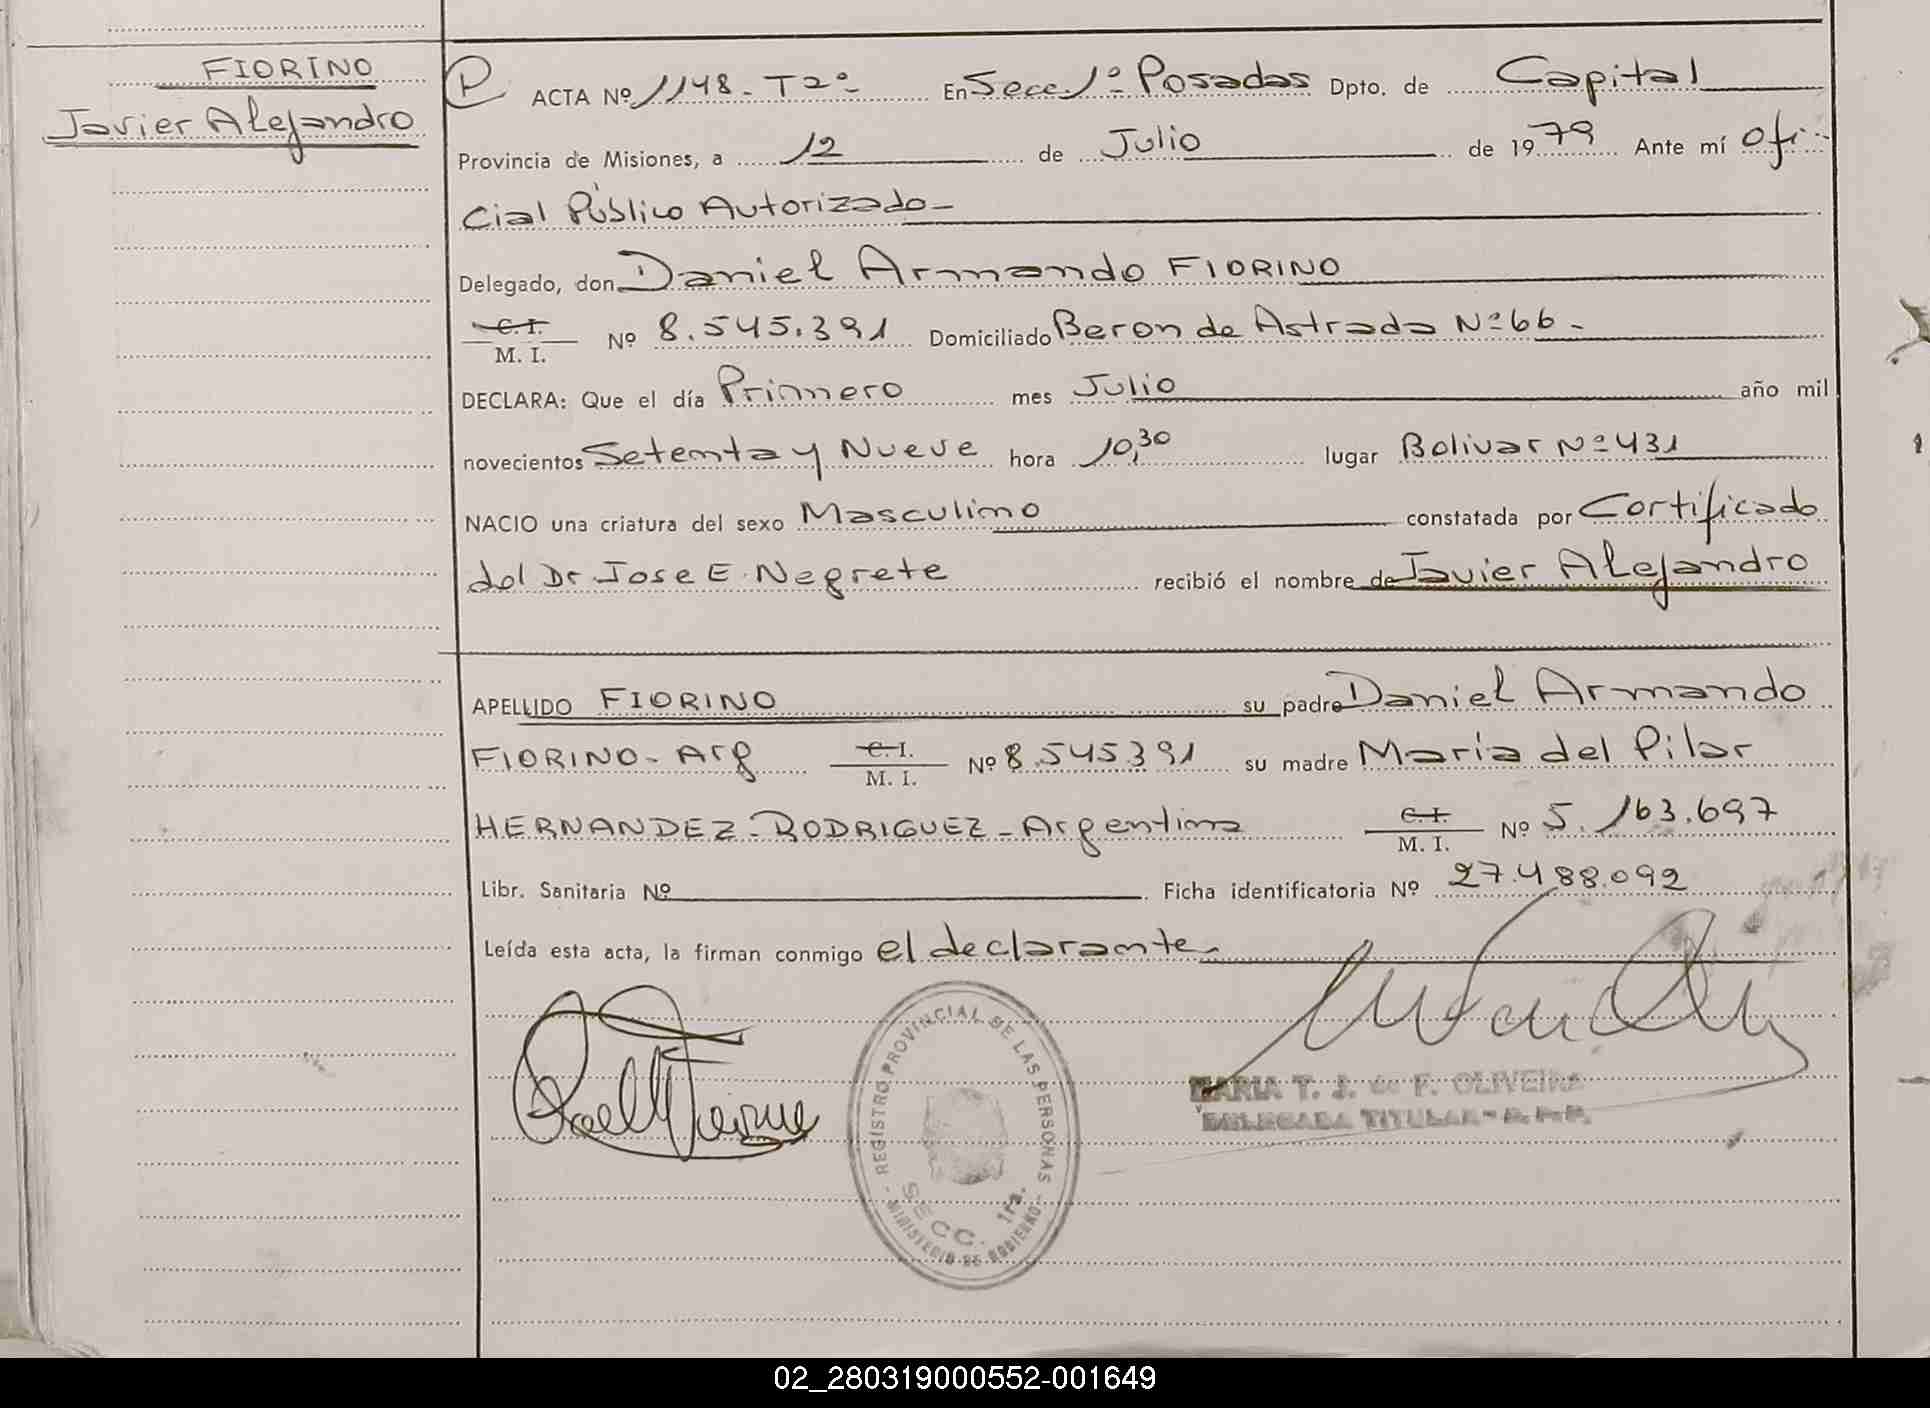 FIORINO
Javier Alejandro
P ACTA Nº 1148 - T2º - En Secc. 1º Posadas Dpto. de Capital
Provincia de Misiones, a 12 de Julio de 1979 Ante mí Ofi-
cial Público Autorizado -
Delegado, don Daniel Armando FIORINO
C.I.
M. I. Nº 8.545.391 Domiciliado Beron de Astrada Nº 66 -
DECLARA: Que el día Primero mes Julio año mil
novecientos Setenta y Nueve hora 10,30 lugar Bolivar Nº 431
NACIO una criatura del sexo Masculino constatada por Certificado
del Dr. Jose E. Negrete recibió el nombre de Javier Alejandro
APELLIDO FIORINO su padre Daniel Armando
FIORINO - Arg C.I.
M. I. Nº 8.545.391 su madre Maria del Pilar
HERNANDEZ - RODRIGUEZ - Argentina C.I.
M. I. Nº 5.163.697
Libr. Sanitaria Nº Ficha identificatoria Nº 27.488.092
Leída esta acta, la firman conmigo el declarante -
REGISTRO PROVINCIAL DE LAS PERSONAS
SECC. 1ra.
- MINISTERIO DE GOBIERNO -
MARIA T. J. de F. OLIVEIRA
DELEGADA TITULAR - R. P. P.
02_280319000552-001649